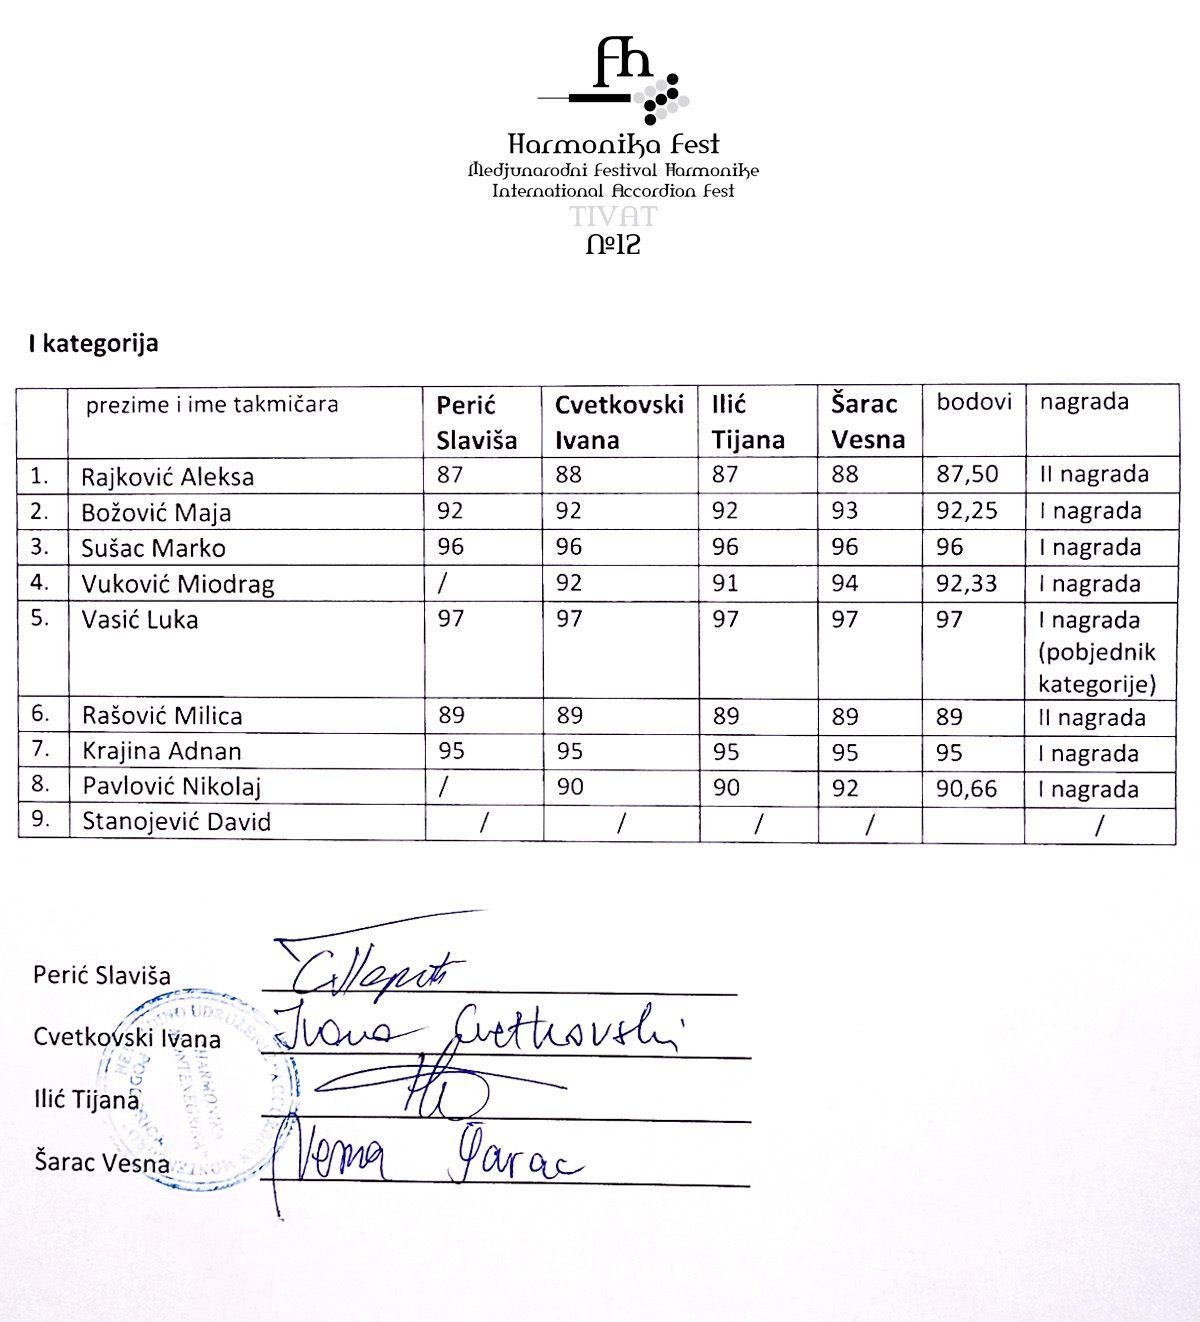 fh
Harmonika Fest
Medjunarodni Festival Harmonike
International Accordion Fest
TIVAT
№12
I kategorija
prezime i ime takmičara Perić Slaviša Cvetkovski Ivana Ilić Tijana Šarac Vesna bodovi nagrada
1. Rajković Aleksa 87 88 87 88 87,50 II nagrada
2. Božović Maja 92 92 92 93 92,25 I nagrada
3. Sušac Marko 96 96 96 96 96 I nagrada
4. Vuković Miodrag / 92 91 94 92,33 I nagrada
5. Vasić Luka 97 97 97 97 97 I nagrada
(pobjednik
kategorije)
6. Rašović Milica 89 89 89 89 89 II nagrada
7. Krajina Adnan 95 95 95 95 95 I nagrada
8. Pavlović Nikolaj / 90 90 92 90,66 I nagrada
9. Stanojević David / / / / /
Perić Slaviša
Cvetkovski Ivana Ivana Cvetkovski
Ilić Tijana
Šarac Vesna Vesna Šarac